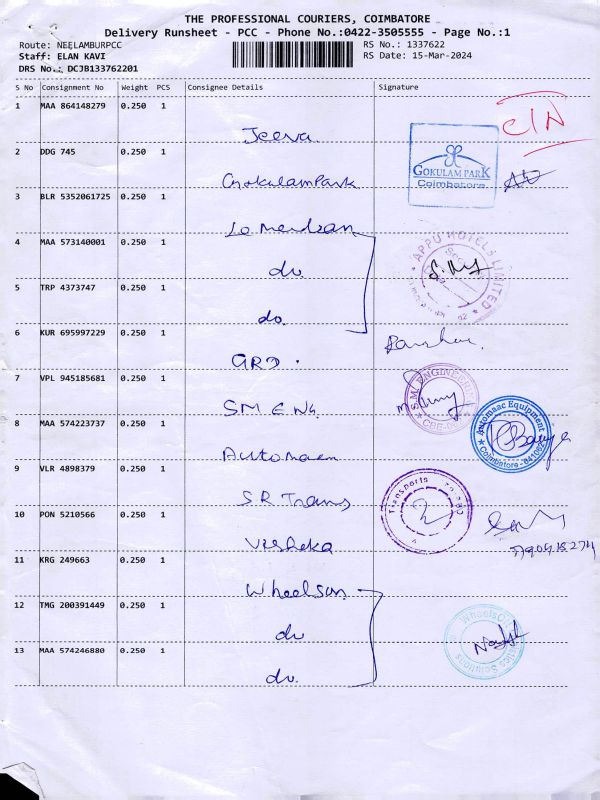 THE PROFESSIONAL COURIERS, COIMBATORE
Delivery Runsheet - PCC - Phone No.:0422-3505555 - Page No.:1
Route: NEELAMBURPCC RS No.: 1337622
Staff: ELAN KAVI RS Date: 15-Mar-2024
DRS No.: DCJB133762201
S No Consignment No Weight PCS Consignee Details Signature
1 MAA 864148279 0.250 1
Jeeva
2 DDG 745 0.250 1
GokulamPark GOKULAM PARK Coimbatore
3 BLR 5352061725 0.250 1
4 MAA 573140001 0.250 1 APPU HOTELS LIMITED
do
5 TRP 4373747 0.250 1
do.
6 KUR 695997229 0.250 1
GRD.
7 VPL 945185681 0.250 1
SM ENG S.M. ENGINEERING
8 MAA 574223737 0.250 1 Automaac Equipment
Coimbatore
9 VLR 4898379 0.250 1
SR Trans Transports
10 PON 5210566 0.250 1
11 KRG 249663 0.250 1
Wheelson
12 TMG 200391449 0.250 1
do
13 MAA 574246880 0.250 1 Solutions
do.